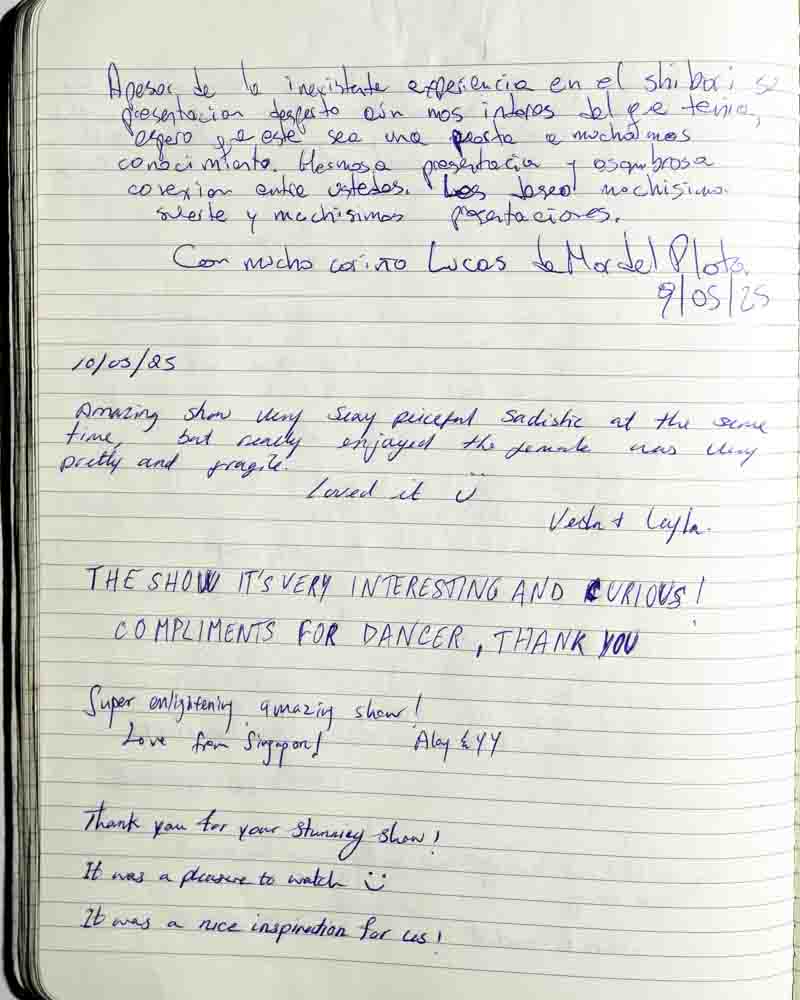 Apesar de la inexistente experiencia en el shibari su
presentacion desperto aún mas interes del que tenia,
espero que este sea una puerta a mucha mas
conocimiento. Hermosa presentacia y asombrosa
conexion entre ustedes. Les deseo muchisima
suerte y muchisimas presentaciones.
Con mucho cariño Lucas de Mar del Plata.
9/05/25
10/05/25
Amazing show very sexy peiceful sadistic at the same
time, but really enjoyed the female was very
pretty and fragile.
Loved it
+ Leyla.
THE SHOW IT'S VERY INTERESTING AND CURIOUS!
COMPLIMENTS FOR DANCER, THANK YOU
Super enlightening, amazing show!
Love from Singapore! & YY
Thank you for your stunning show!
It was a pleasure to watch
It was a nice inspiration for us!